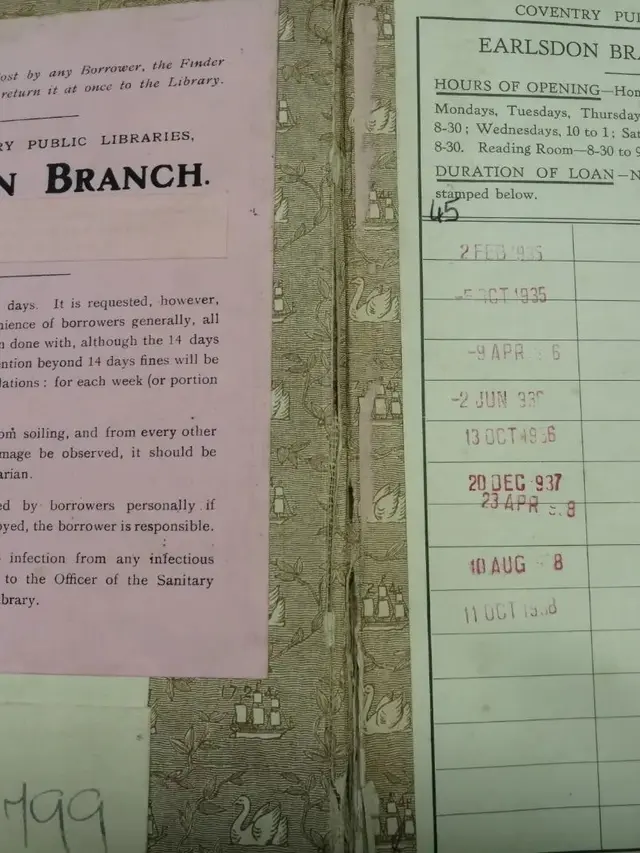 ost by any Borrower, the Finder
return it at once to the Library.
RY PUBLIC LIBRARIES,
N BRANCH.
days. It is requested, however,
nience of borrowers generally, all
n done with, although the 14 days
ention beyond 14 days fines will be
lations: for each week (or portion
om soiling, and from every other
mage be observed, it should be
arian.
ed by borrowers personally if
oyed, the borrower is responsible.
infection from any infectious
to the Officer of the Sanitary
ibrary.
799
COVENTRY PU
EARLSDON BRA
HOURS OF OPENING—Hom
Mondays, Tuesdays, Thursday
8-30; Wednesdays, 10 to 1; Sat
8-30. Reading Room—8-30 to 9
DURATION OF LOAN—N
stamped below.
45
2 FEB 1935
-5 OCT 1935
-9 APR 6
-2 JUN 193
13 OCT 1936
20 DEC 937
23 APR 8
10 AUG 8
11 OCT 1938